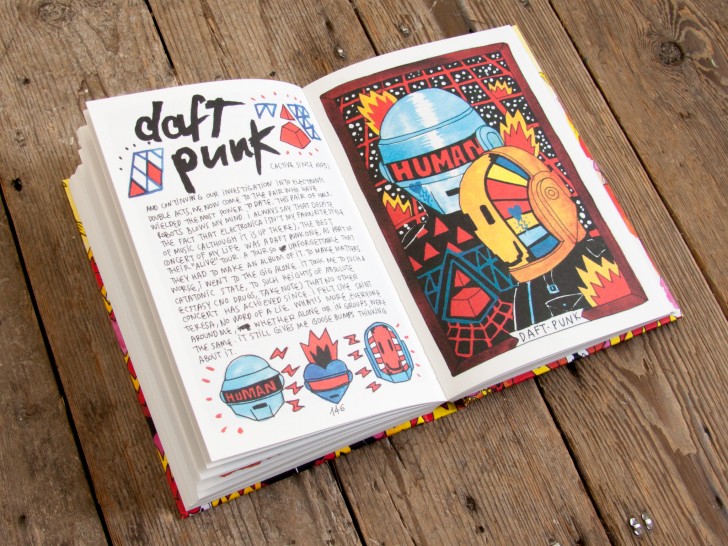 daft
punk
(ACTIVE SINCE 1993)
AND CONTINUING OUR INVESTIGATION INTO ELECTRONIC
DOUBLE ACTS, WE NOW COME TO THE PAIR WHO HAVE
WIELDED THE MOST POWER TO DATE. THIS PAIR OF HALF-
ROBOTS BLOWS MY MIND. I ALWAYS SAY THAT DESPITE
THE FACT THAT ELECTRONICA ISN'T MY FAVOURITE STYLE
OF MUSIC (ALTHOUGH IT IS UP THERE), THE BEST
CONCERT OF MY LIFE WAS A DAFT PUNK ONE, AS PART OF
THEIR "ALIVE" TOUR. A TOUR SO UNFORGETTABLE THAT
THEY HAD TO MAKE AN ALBUM OF IT. TO MAKE MATTERS
WORSE, I WENT TO THE GIG ALONE. IT TOOK ME TO SUCH A
CATATONIC STATE, TO SUCH HEIGHTS OF ABSOLUTE
ECSTASY (NO DRUGS, TAKE NOTE) THAT NO OTHER
CONCERT HAS ACHIEVED SINCE. I FELT LIKE SAINT
TERESA, NO WORD OF A LIE. WHAT IS MORE, EVERYONE
AROUND ME, WHETHER ALONE OR IN GROUPS, WERE
THE SAME. IT STILL GIVES ME GOOSE BUMPS THINKING
ABOUT IT.
HUMAN
146
HUMAN
DAFT-PUNK